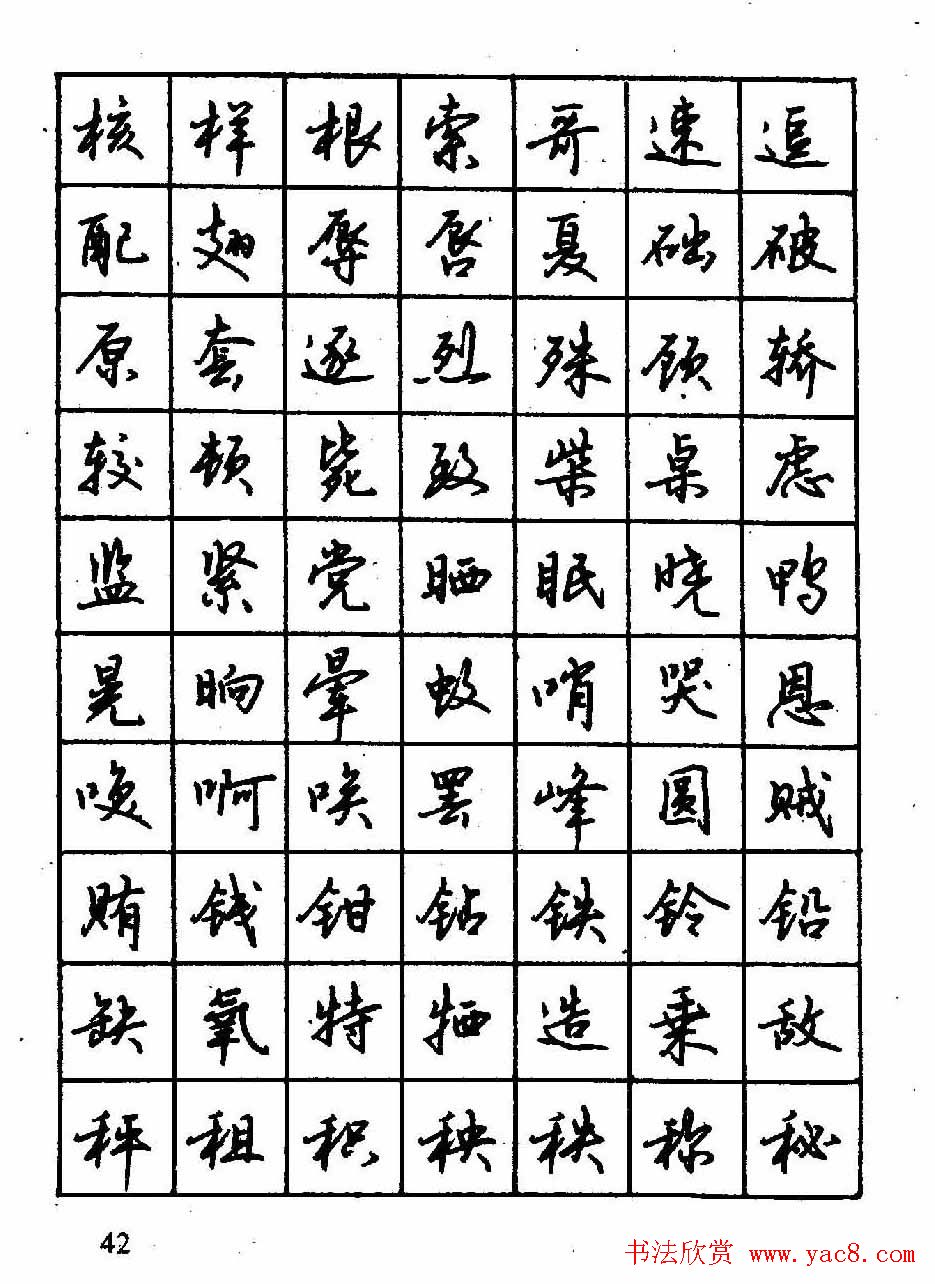 核样根索哥速追
配翅辱唇夏础破
原套逐烈殊顾轿
较顿毙致柴桌虑
监紧党晒眠晓鸭
晃晌晕蚊哨哭恩
唤啊唉罢峰圆贼
贿钱钳钻铁铃铅
缺氧特牺造乘敌
秤租积秧秩称秘
42
书法欣赏 www.yac8.com